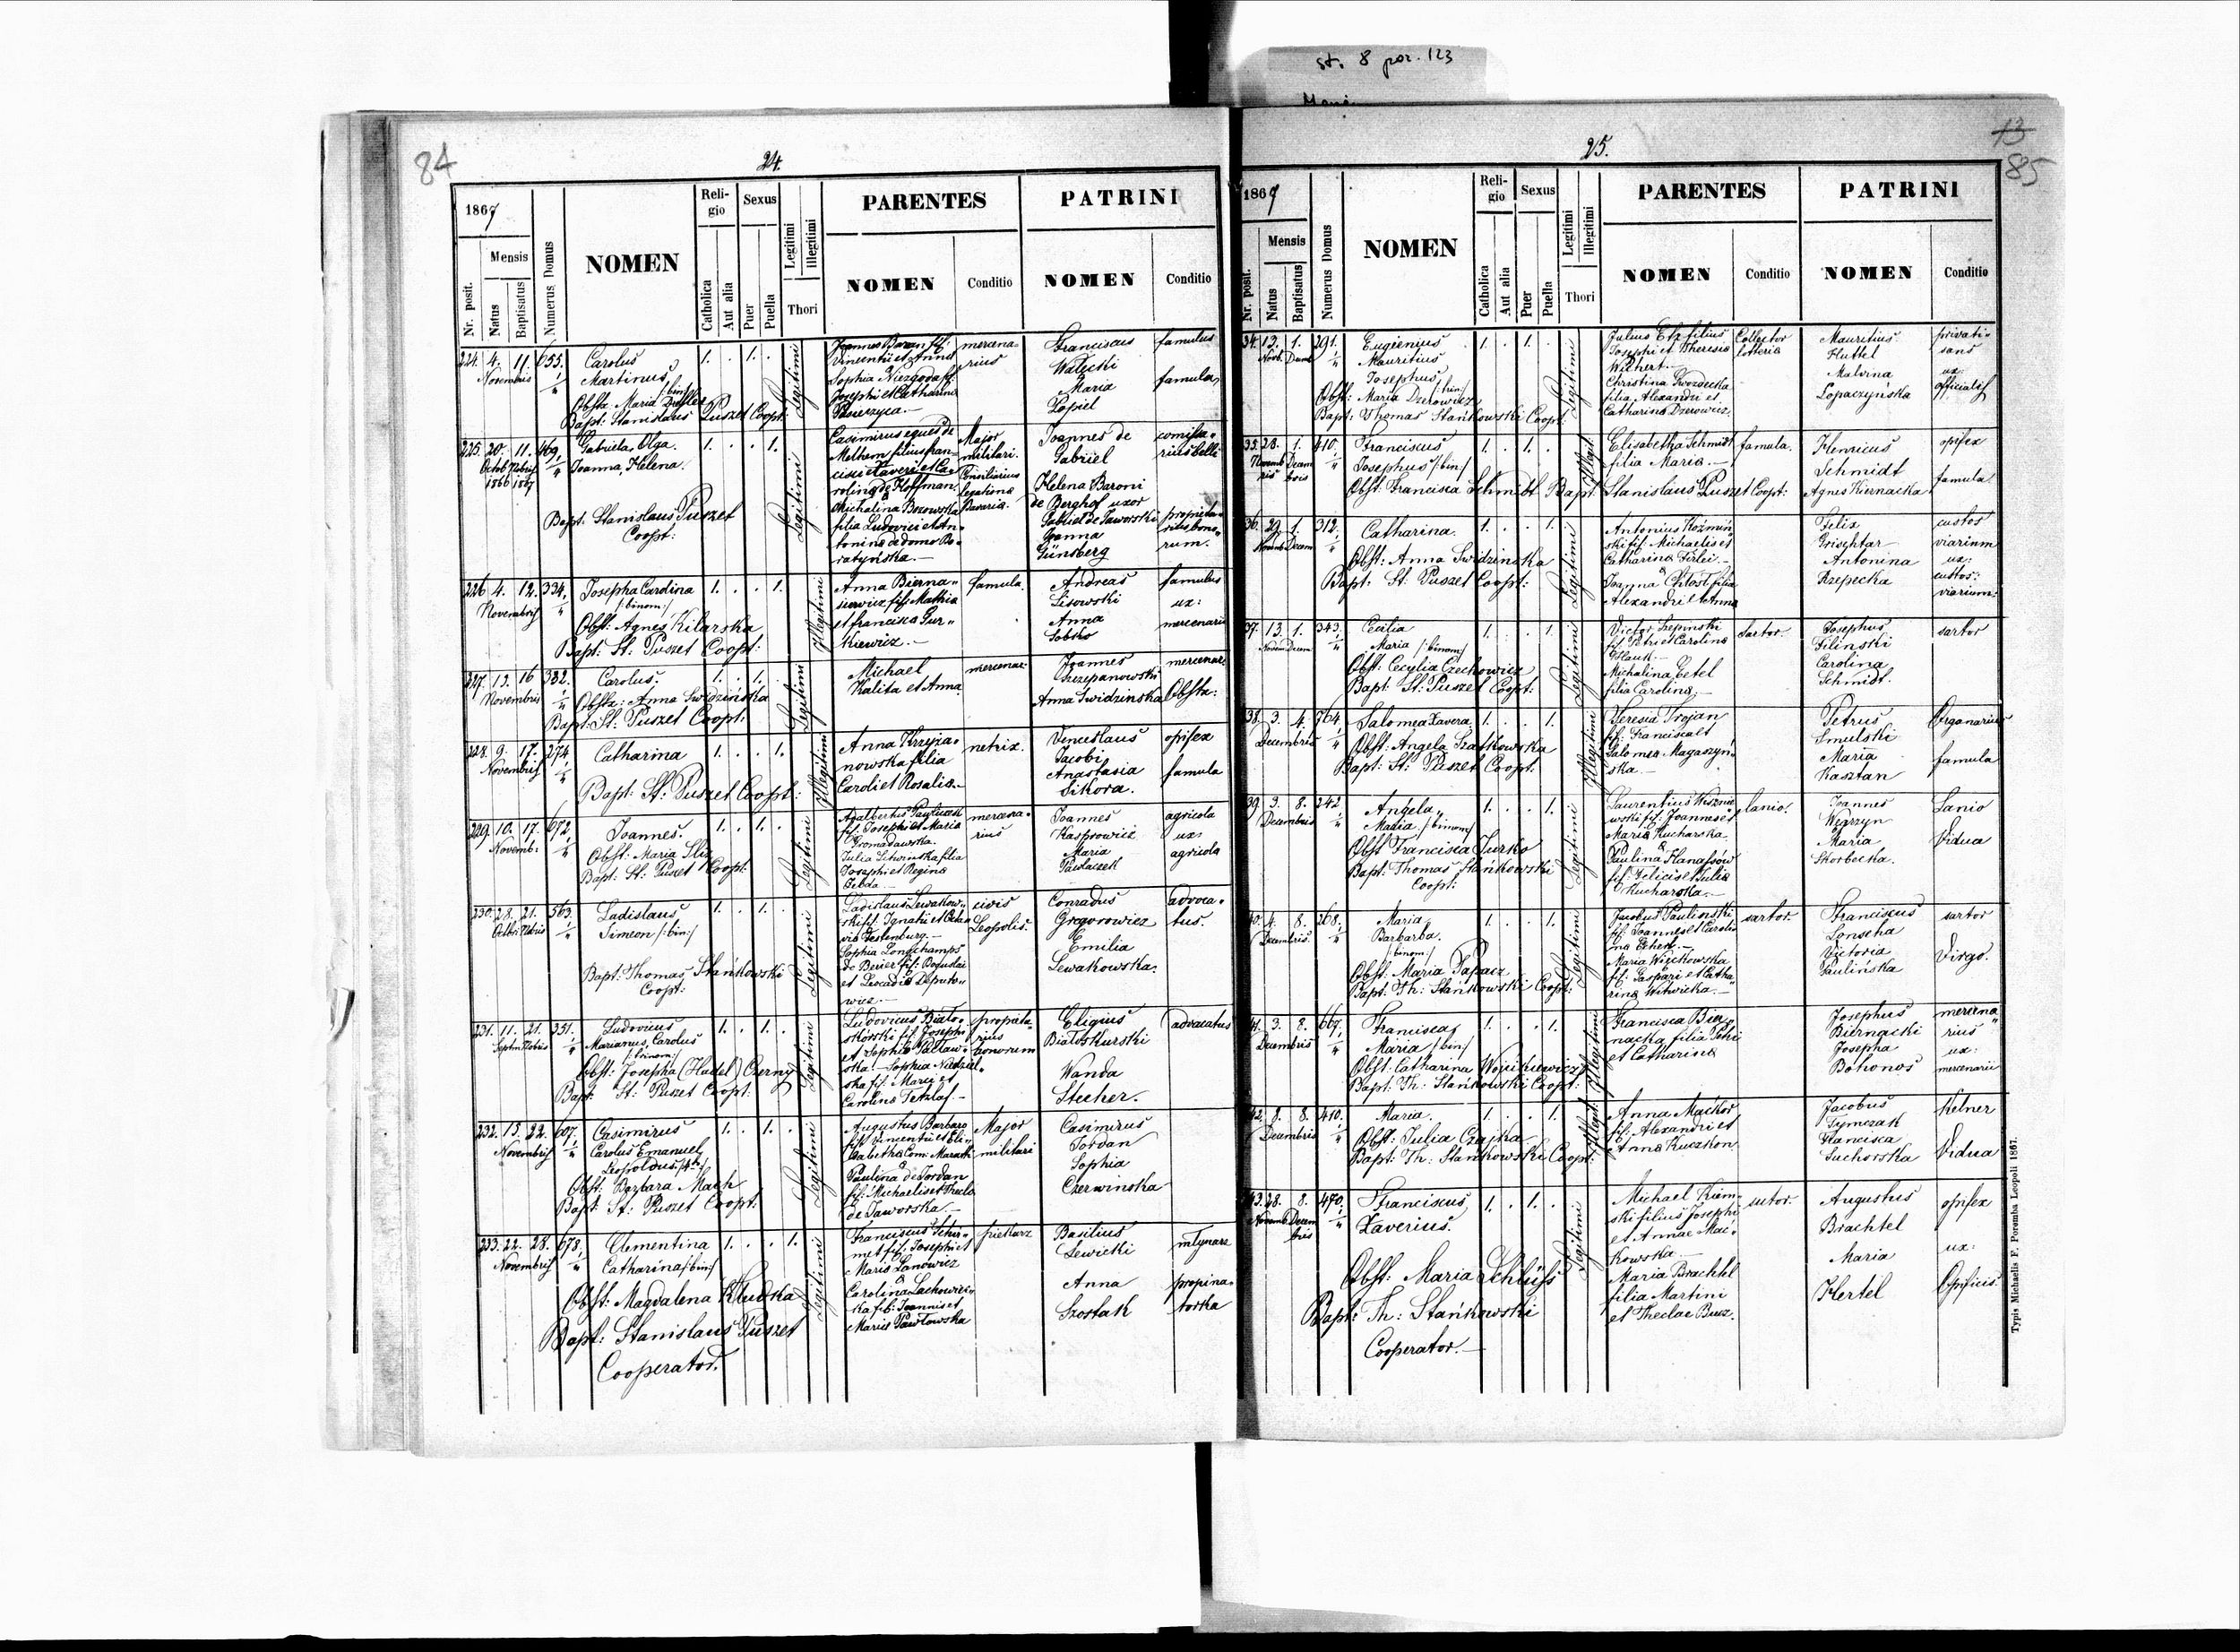 st. 8 poz. 123
84
24.
1867
Mensis
Nr. posit.
Natus
Baptisatus
Numerus Domus
NOMEN
Religio
Catholica
Aut alia
Sexus
Puer
Puella
Legitimi
Illegitimi
Thori
PARENTES
NOMEN
Conditio
PATRINI
NOMEN
Conditio
224. 4. 11. 655.
Novembris
Carolus
Martinus /:bin:/
Obstx. Maria Drexler
Bapt. Stanislaus Puszet Coopt:
1. . 1. .
Legitimi
Joannes Baran fil:
Vincentii et Anna
Sophia Niezgoda f:
Josephi et Catharina
mercenarius
Franciscus
Wałęcki
Maria
Popiel
famulus
famula
225. 20. 11. 469.
Octob Nobris
1866 1867
Gabriela, Olga.
Joanna, Helena.
Bapt. Stanislaus Puszet
Coopt:
1. . . 1.
Legitimi
Casimirus eques de
Melhem filius Francisci
Xaveri et Carolina
de Hoffman.
&
Michalina Borowska
filia Ludovici et Antonina
de domo Boratyńska.—
Major
militari.
Consiliarius
legationa
Bavaria.
Joannes de
Gabriel
Helena Baroni
de Berghof uxor
Gabriel de Jaworski
Joanna
Günsberg
comissarius belli
proprietarius bonorum.
226. 4. 12. 334.
Novembris
Josepha Carolina
/:binom:/
Obst: Agnes Kilarska
Bapt: St: Puszet Coopt:
1. . . 1.
Illegitimi
Anna Biernasiewicz
fil: Mathia
et Francisca Gurkiewicz.—
famula.
Andreas
Lisowski
Anna
Sobko
famulus
ux:
mercenarii
227. 13. 16 382.
Novembris
Carolus.
Obstx: Anna Swidzińska
Bapt: St. Puszet Coopt:
1. . 1. .
Legitimi
Michael
Kalita et Anna
mercenar.
Joannes
Szczepanowski
Anna Swidzinska
mercenar.
Obstx:
228. 9. 17. 274.
Novembris
Catharina
Bapt: St: Puszet Coopt:
1. . . 1.
Illegitimi
Anna Krzyżanowska
filia
Caroli et Rosalia.—
netrix.
Venceslaus
Jacobi
Anastasia
Sikora.
opifex
famula
229. 10. 17. 672.
Novemb:
Joannes.
Obst: Maria Śliz
Bapt: St: Puszet Coopt:
1. . 1. .
Legitimi
Adalbertus Pawlaczek
fil: Josephi et Maria
Gromadawska.
Julia Litwinska filia
Josephi et Regina
mercenarius
Joannes
Kasprowicz
Maria
Pawlaczek
agricola
ux:
agricola
230. 28. 21. 563.
Octbr. Nobris
Ladislaus
Simeon /:bin:/
Bapt: Thomas Stańkowski
Coopt:
1. . 1. .
Legitimi
Ladislaus Lewakowski
f: Ignatii et Octavia
Sophia Longchamps
de Berier fil: Boguslai
et Leocadia
civis
Leopolis.
Conradus
Gregorowicz
Emilia
Lewakowska.
advocatus.
231. 11. 21. 351.
Septem Nobris
Ludovicus
Marianus, Carolus
/:trinom:/
Obst: Josepha (Hadel) Czerny
Bapt: St: Puszet Coopt:
1. . 1. .
Legitimi
Ludovicus Białoskórski
fil: Josephi
et Sophia
Sophia
fil: Marci et
Carolina Tetzlaf.—
proprietarius
bonorum
Eligius
Białoskurski
Wanda
Stecher.
advocatus
232. 15. 22. 607.
Novembris
Casimirus
Carolus Emanuel
Leopoldus
Obst: Barbara Mach
Bapt: St: Puszet Coopt:
1. . 1. .
Legitimi
Augustus Barbaro
fil: Vincentii et Elisabetha
Paulina de Jordan
fil: Michaelis et Thecla
de Jaworska.—
Major
militari
Casimirus
Jordan
Sophia
Czerwinska
233. 22. 28. 678.
Novembris
Clementina
Catharina /:bin:/
Obst: Magdalena Kludka
Bapt: Stanislaus Puszet
Cooperator.
1. . . 1.
Legitimi
Franciscus
fil: Josephi et
Maria Janowicz
&
Carolina Lachowicz
fil: Joannis et
Maria Pawlowska
piekarz
Basilius
Lewicki
Anna
Szostak
młynarz
propinatorka
13
85
25.
1867
Mensis
Nr. posit.
Natus
Baptisatus
Numerus Domus
NOMEN
Religio
Catholica
Aut alia
Sexus
Puer
Puella
Legitimi
Illegitimi
Thori
PARENTES
NOMEN
Conditio
PATRINI
NOMEN
Conditio
34. 12. 1. 291.
Novb. Decemb
Eugienius
Mauritius
Josephus /:trin:/
Obst: Maria Dzerowicz
Bapt: Thomas Stańkowski Coopt:
1. . 1. .
Legitimi
Julius Etz filius
Josephi et Theresia
Wichert.—
Christina Gwozdecka
filia Alexandri et
Catharina Dzerowicz.
Collector
lotteria
Mauritius
Huttel
Malvina
Lopaczyńska
privatisans
ux:
officialis
35. 28. 1. 410.
Novembris Decembris
Franciscus
Josephus /:bin:/
Obst: Francisca Schmidt Bapt. Stanislaus Puszet Coopt:
1. . 1. .
Illegit.
Elisabetha Schmidt
filia Maria.—
famula.
Henricus
Schmidt
Agnes Kiernacka
opifex
famula
36. 29. 1. 312.
Novemb Decem
Catharina.
Obst: Anna Swidzinska
Bapt: St. Puszet Coopt:
1. . . 1.
Legitimi
Antonius Kozminski
fil: Michaelis et
Catharina
&
Joanna Chlost filia
Alexandri et Anna
Felix
Grisehtar
Antonina
Rzepecka
custos
viarium
ux:
custos:
viarium:
37. 13. 1. 343.
Novem Decem
Cecilia
Maria /:binom:/
Obst: Cecylia Czechowicz
Bapt: St: Puszet Coopt:
1. . . 1.
Legitimi
Victor Szepinski
fil: Petri et Carolina
Michalina Getel
filia Carolina.—
Sartor.
Josephus
Filinski
Carolina
Schmidt.
sartor
38. 3. 4. 764.
Decembris
Salomea Xavera.
Obst: Angela Szatkowska
Bapt: St: Puszet Coopt:
1. . . 1.
Illegitimi
Teresia Trojan
fil: Francisca et
Salomea Magaszynska.—
Petrus
Smulski
Maria
Kasztan
Organarius
famula
39. 3. 8. 242
Decembris
Angela,
Maria /:binom:/
Obst Francisca Jurko
Bapt: Thomas Stańkowski
Coopt:
1. . . 1.
Legitimi
Laurentius Wiszniewski
fil: Joannes et
Maria Kucharska.
&
Paulina Hanassow
fil: Felicis et Julia
Kucharska.—
lanio.
Joannes
Węrzyn
Maria
Skorbecka.
Lanio
Vidua
40. 4. 8. 268.
Decembris.
Maria,
Barbarba.
/:binom:/
Obst: Maria Papacz
Bapt: Th: Stańkowski Coopt:
1. . . 1.
Legitimi
Jacobus Paulinski
fil: Joannes et Carolina
Eckert.—
Maria Więckowska
fil: Gaspari et Catharina
Witwicka.—
sartor.
Franciscus
Lonseha
Victoria
Paulińska
sartor
Virgo.
41. 3. 8. 667.
Decembris
Francisca,
Maria /:bin:/
Obst: Catharina Wojcikiewicz
Bapt: Th: Stańkowski Coopt:
1. . . 1.
Illegitimi
Francisca Biernacka,
filia Petri
et Catharisa
Josephus
Biernacki
Josepha
Bohonos
mercenarius
ux:
mercenarii
42. 8. 8. 410.
Decembris
Maria.
Obst: Julia Czajka
Bapt: Th: Stańkowski Coopt:
1. . . 1.
Illegit.
Anna Maćkow
fil: Alexandri et
Anna Kuczkon
Jacobus
Tymczak
Francisca
Suchorska
Kelner
Vidua
43. 28. 8. 470.
Novemb. Decembris
Franciscus,
Xaverius.
Obst: Maria Schlüss
Bapt: Th: Stańkowski
Cooperator.—
1. . 1. .
Legitimi
Michael Kiemski
filius Josephi
et Annae Mackowska.—
Maria Brachtel
filia Martini
et Theclae Busz.
sutor.
Augustus
Brachtel
Maria
Hertel
opifex
ux:
Opificis.
Typis Michaelis F. Poremba Leopoli 1867.